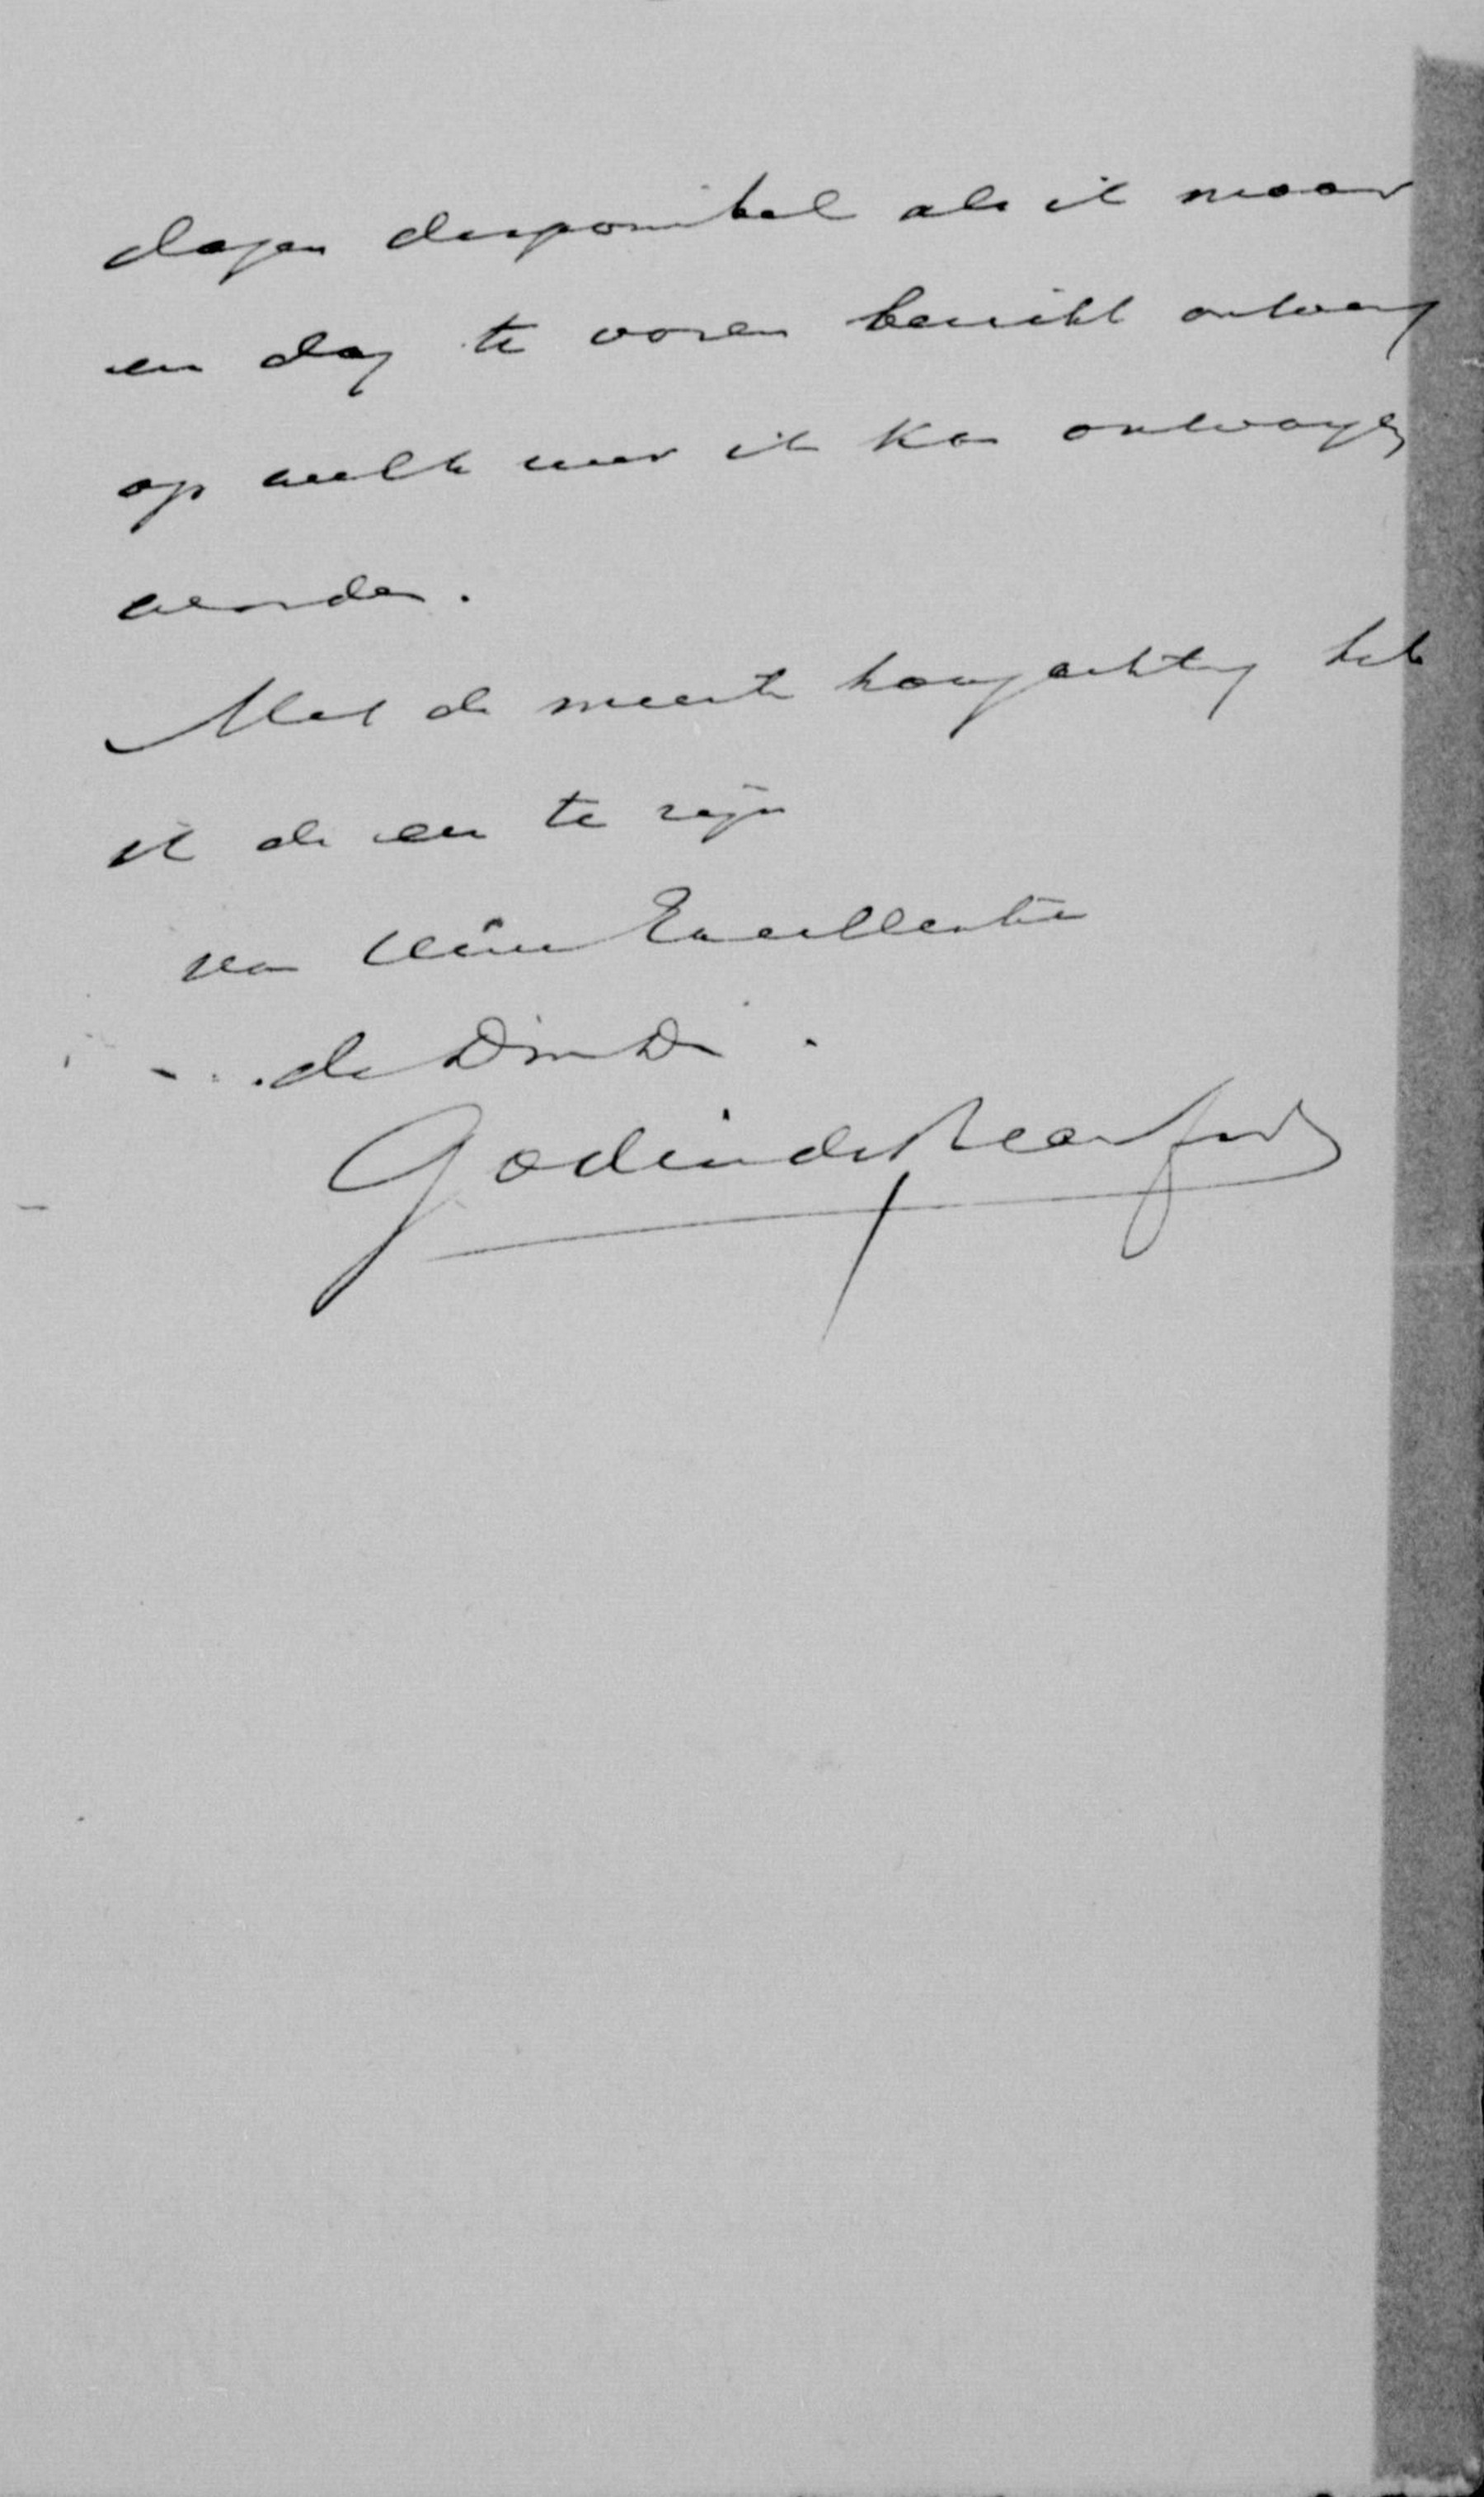 dagen disponibel als ik maar
een dag te voren bericht ontvang
op welk uur ik kan ontvangen
worden.
Met de meeste hoogachting heb
ik de eer te zijn
van Uwe Excellentie
de Dw Dr
Godin de Beaufort